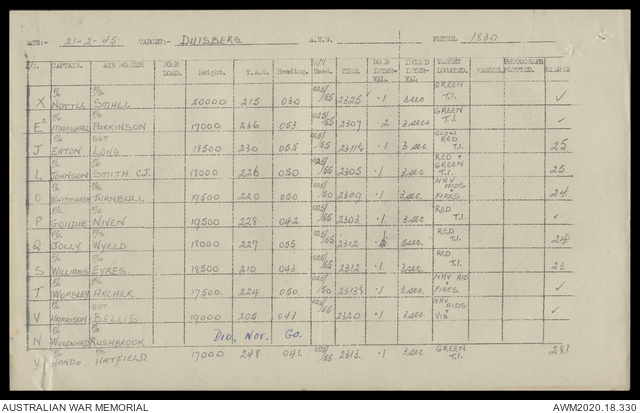 DATE:- 21-2-45 TARGET:- DUISBERG A.U.W. PETROL 1830
A/C. CAPTAIN. AIR BOMBER BOMB LOAD. Height. T.A.S. Heading. W/V Used. TIME. BOMB INTER- VAL. INCEND INTER- VAL. TARGET LOCATED. FAILED. PHOTOGRAPH PLOTTED.
X F/O NOTTLE F/S SMALL 20000 215 030 025/55 2325 .1 3 sec GREEN T.I. ✓
E² F/O MARSHALL F/S PARKINSON 17000 236 053 025/55 2307 .2 3 secs GREEN T.I. ✓
J F/O EATON SGT LONG 18500 230 055 025/55 2311½ .1 3 sec. GLOW RED T.I. 25
L F/O JOHNSON F/O SMITH C.J. 18000 226 050 025/55 2305 .1 3 sec RED + GREEN T.I. 25
O F/O WHITMARSH F/S TURNBULL 19500 220 050 025/50 2309 .1 3 sec. NAV AIDS + FIRES. 24
P F/O GOLDIE F/S NIVEN 19500 228 042 025/55 2303 .1 3 sec RED T.I. ✓
Q F/L JOLLY F/S WYELD 18000 227 055 025/55 2312 sec. RED T.I. 24
S F/L WILLIAMS F/S EYRES 18500 210 043 025/55 2312 .1 3 sec. RED T.I. 23
T F/O WORSLEY F/S ARCHER 17500. 224 050 025/50 2313½ .1 3 sec. NAV AID + FIRES. ✓
V F/O HARRISON SGT BELLIS 19000 205 043 025/55 2320 .1 3 sec. NAV AIDS + VIS ✓
N F/O WOODWARD F/S RUSHBROOK Did, Not. Go.
Y F/O HANDO F/S HATFIELD 17000 248 041. 025/55 2313. .1 3 sec GREEN T.I. 283
AUSTRALIAN WAR MEMORIAL AWM2020.18.330